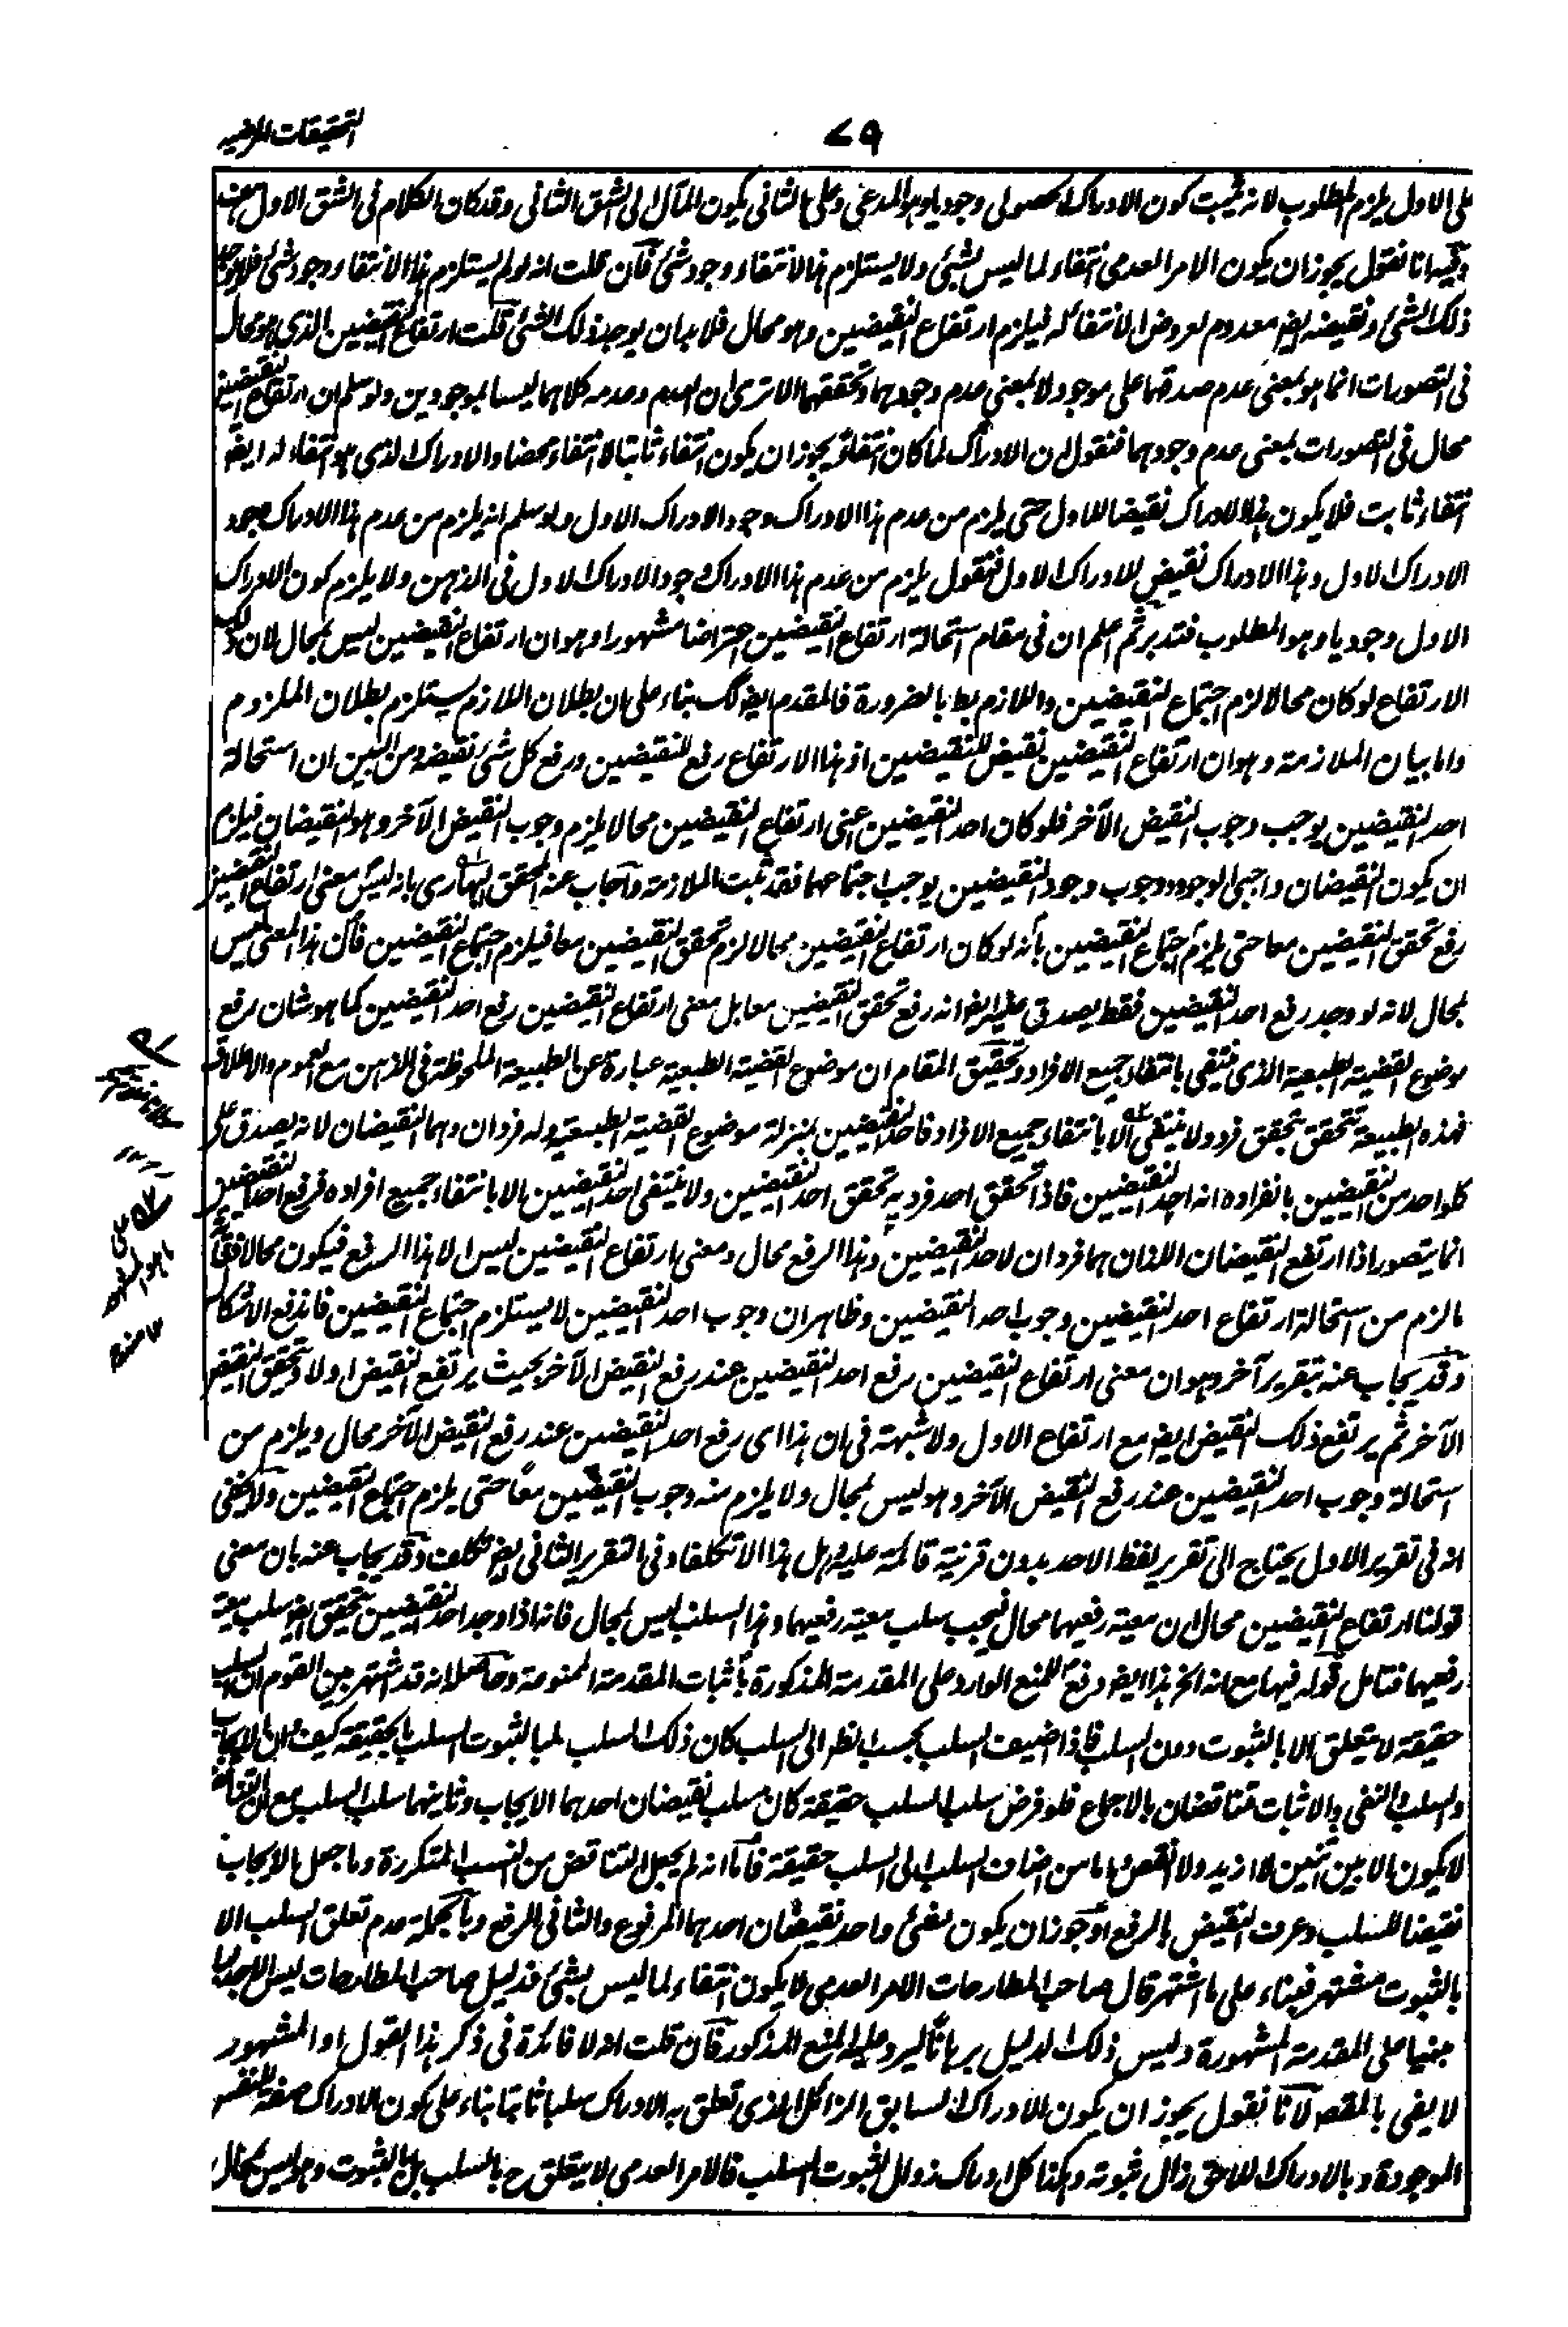 التحقيقات المرضيه
٧٩
على الاول يلزم المطلوب لانه يثبت كون الادراك الحصولى وجوديا وهو المدعى وعلى الثانى يكون المآل الى الشق الثانى وقد كان الكلام فى الشق الاول هف
وفيه انا نقول يجوز ان يكون الامر العدمى انتفاء لما ليس بشئ ولا يستلزم هذا الانتفاء وجود شئ فآن قلت انه لو لم يستلزم هذا الانتفاء وجود شئ فلا يوجد
ذلك الشئ ونقيضه ايضا معدوم لعروض الانتفاء له فيلزم ارتفاع النقيضين وهو محال فلا بد ان يوجد ذلك الشئ قلت ارتفاع النقيضين الذى هو محال
فى التصورات انما هو بمعنى عدم صدقهما على موجود لا بمعنى عدم وجودهما وتحققهما الا ترى ان العدم وعدمه كلاهما ليسا بموجودين ولو سلم ان ارتفاع النقيضين
محال فى التصورات بمعنى عدم وجودهما فنقول ان الادراك لما كان انتفاء يجوز ان يكون انتفاء ثابتا لا انتفاء محضا والادراك الذى هو انتفاء له ايضا
انتفاء ثابت فلا يكون هذا الادراك نقيضا للاول حتى يلزم من عدم هذا الادراك وجود الادراك الاول ولو سلم انه يلزم من عدم هذا الادراك وجود
الادراك الاول وهذا الادراك نقيض للادراك الاول فنقول يلزم من عدم هذا الادراك وجود الادراك الاول فى الذهن ولا يلزم كون الادراك
الاول وجوديا وهو المطلوب فتدبر ثم اعلم ان فى مقام استحالة ارتفاع النقيضين اعتراضا مشهورا وهو ان ارتفاع النقيضين ليس بمحال لان ذلك
الارتفاع لو كان محالا لزم اجتماع النقيضين واللازم بط بالضرورة فالمقدم ايضا كك بناء على ان بطلان اللازم يستلزم بطلان الملزوم
واما بيان الملازمة وهو ان ارتفاع النقيضين نقيض للنقيضين اذ هذا الارتفاع رفع للنقيضين ورفع كل شئ نقيضه ومن البين ان استحالة
احد النقيضين يوجب وجوب النقيض الآخر فلو كان احد النقيضين اعنى ارتفاع النقيضين محالا يلزم وجوب النقيض الآخر وهو النقيضان فيلزم
ان يكون النقيضان واجبى الوجود ووجوب وجود النقيضين يوجب اجتماعهما فقد ثبت الملازمة وآجاب عنه المحقق البهارى بانه ليس معنى ارتفاع النقيضين
رفع تحقق النقيضين معا حتى يلزم اجتماع النقيضين بأنه لو كان ارتفاع النقيضين محالا لزم تحقق النقيضين معا فيلزم اجتماع النقيضين فآن هذا المعنى ليس
بمحال لانه لو وجد رفع احد النقيضين فقط يصدق عليه ايضا انه رفع تحقق النقيضين معا بل معنى ارتفاع النقيضين رفع احد النقيضين كما هو شان رفع
موضوع القضية الطبعية الذى ينتفى بانتفاء جميع الافراد وتحقيق المقام ان موضوع القضية الطبعية عبارة عن الطبيعة الملحوظة فى الذهن مع العموم والاطلاق
فهذه الطبيعة تتحقق بتحقق فرد ولا ينتفى الا بانتفاء جميع الافراد فاحد النقيضين بمنزلة موضوع القضية الطبعية وله فردان وهما النقيضان لانه يصدق على
كلواحد من النقيضين بانفراده انه احد النقيضين فاذا تحقق احد فرديه تحقق احد النقيضين ولا ينتفى احد النقيضين الا بانتفاء جميع افراده فرفع احد النقيضين
انما يتصور اذا ارتفع النقيضان اللذان هما فردان لاحد النقيضين وهذا الرفع محال ومعنى ارتفاع النقيضين ليس الا هذا الرفع فيكون محالا
ما لزم من استحالة ارتفاع احد النقيضين وجوب احد النقيضين وظاهر ان وجوب احد النقيضين لا يستلزم اجتماع النقيضين فاندفع الاشكال
وقد يجاب عنه بتقرير آخر وهو ان معنى ارتفاع النقيضين رفع احد النقيضين عند رفع النقيض الآخر بحيث يرتفع النقيض اولا وتحقق النقيض
الآخر ثم يرتفع ذلك النقيض ايضا مع ارتفاع الاول ولا شبهة فى ان هذا اى رفع احد النقيضين عند رفع النقيض الآخر محال ويلزم من
استحالة وجوب احد النقيضين عند رفع النقيض الآخر وهو ليس بمحال ولا يلزم منه وجوب النقيضين معا حتى يلزم اجتماع النقيضين ولا يخفى
انه فى تقرير الاول يحتاج الى تقرير لفظ الاحد بدون قرينة قائمة عليه وهل هذا الا تكلفا وفى التقرير الثانى ايضا تكلف وقد يجاب عنه بان معنى
قولنا ارتفاع النقيضين محال ان معية رفعيهما محال فيجب سلب معية رفعيهما وهذا السلب ليس بمحال فانه اذا وجد احد النقيضين يتحقق ايضا سلب معية
رفعيهما فتامل قوله فيها مع انه الخ هذا ايضا دفع للمنع الوارد على المقدمة المذكورة بأثبات المقدمة الممنوعة وحاصله انه قد اشتهر بين القوم ان السلب
حقيقة لا يتعلق الا بالثبوت دون السلب فاذا اضيف السلب بحسب النظر الى السلب كان ذلك السلب سلبا لثبوت السلب بالحقيقة كيف وان الايجاب
والسلب والنفى والاثبات متناقضان بالاجماع فلو فرض سلب السلب حقيقة كان للسلب نقيضان احدهما الايجاب وثانيهما سلب السلب مع ان التناقض
لا يكون الا بين اثنين لا ازيد ولا انقص واما من اضاف السلب الى السلب حقيقة فأما انه لم يجعل التناقض من النسب المتكررة وما جعل الايجاب
نقيضا للسلب وعرف النقيض بالرفع اوجوز ان يكون لشئ واحد نقيضان احدهما المرفوع والثانى الرفع وبالجملة عدم تعلق السلب الا
بالثبوت مشتهر فبناء على ما اشتهر قال صاحب المطارحات الامر العدمى لا يكون انتفاء لما ليس بشئ فدليل صاحب المطارحات ليس الا جدليا
مبنيا على المقدمة المشهورة وليس ذلك الدليل برهانا ليرد عليه المنع المذكور فان قلت انه لا فائدة فى ذكر هذا القول اذ المشهور
لا يفى بالمقصد لانا نقول يجوز ان يكون الادراك السابق الزائل الذى تعلق به الادراك سلبا ثابتا بناء على كون الادراك صفة للنفس
الموجودة وبالادراك اللاحق زال ثبوته وهكذا كل ادراك زوال لثبوت السلب فالامر العدمى لا يتعلق ح بالسلب بل بالثبوت وهو ليس بمحال